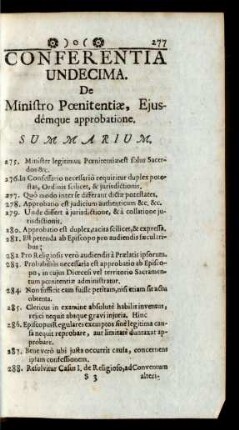 )o( 277
CONFERENTIA
UNDECIMA.
De
Ministro Pœnitentiæ, Ejus-
démque approbatione.
SUMMARIUM.
275. Minister legitimus Pœnitentiæ est solus Sacer-
dos &c.
276. In Confessario necessariò requiritur duplex pote-
stas, Ordinis scilicet, & jurisdictionis,
277. Quô modo inter se differant dictæ potestates,
278. Approbatio est judicium authenticum &c. &c.
279. Unde differt à jurisdictione, & à collatione juris-
dictionis.
280. Approbatio est duplex, tacita scilicet, & expressa.
281. Est petenda ab Episcopo pro audiendis sæculari-
bus;
282. Pro Religiosis verò audiendis à Prælatis ipsorum.
283. Probabilius necessaria est approbatio ab Episco-
po, in cujus Diœcesi vel territorio Sacramen-
tum pœnitentiæ administratur.
284. Non sufficit eam fuisse petitam, nisi etiam sit actu
obtenta.
285. Clericus in examine absolutè habilis inventus,
reiici nequit absque gravi injuria. Hinc
286. Episcopus Regulares exemptos sinè legitima cau-
sa nequit reprobare, aut limitatè duntaxat ap-
probare.
287. Bene verò ubi justa occurrit causa, concernens
ipsam confessionem.
288. Resolvitur Casus I. de Religioso, ad Conventum
S 3 alteri-